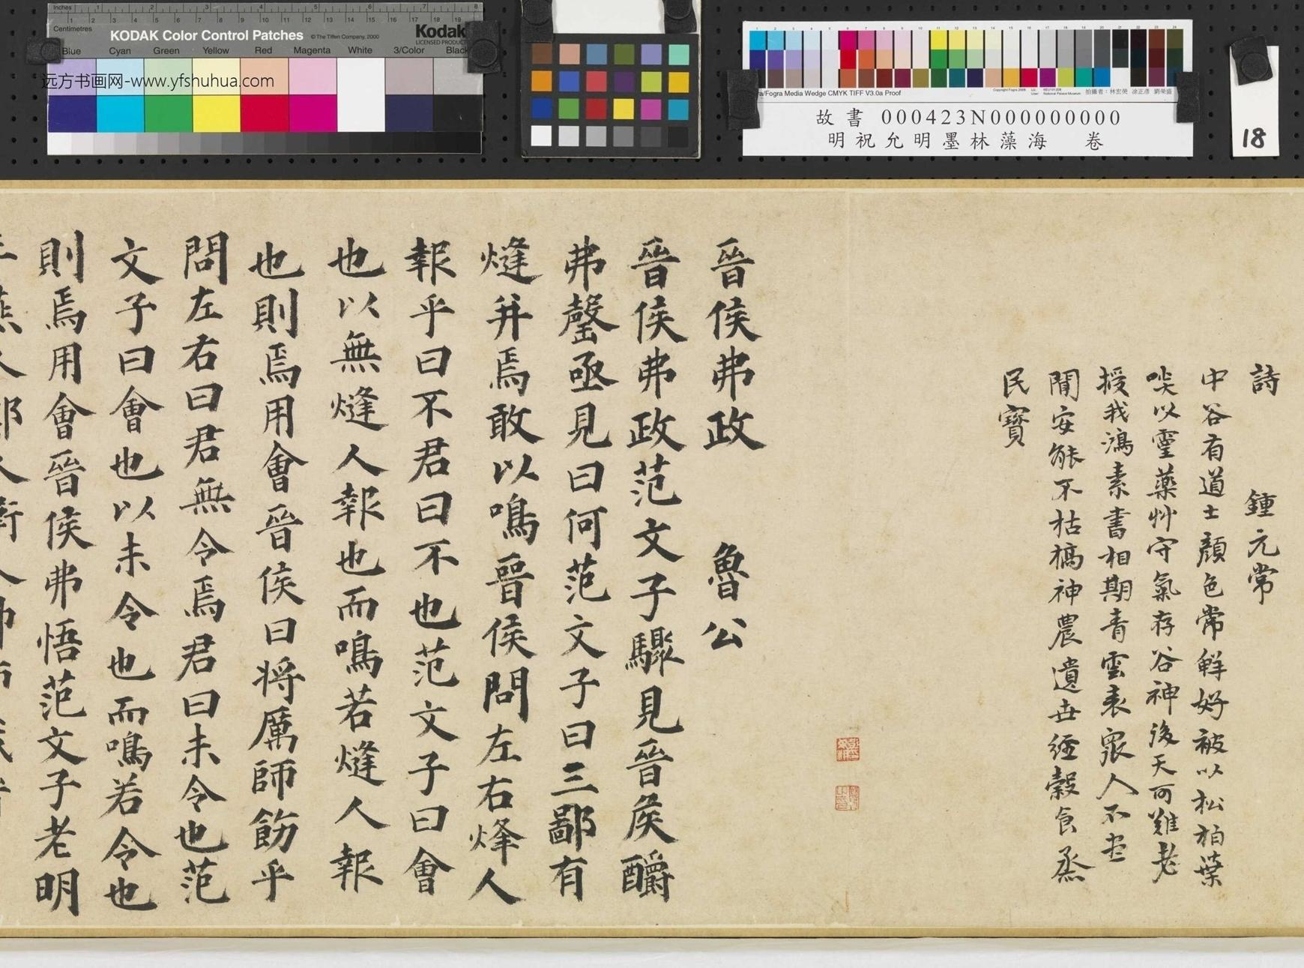 Inches
Centimetres
KODAK Color Control Patches
© The Tiffen Company, 2000
Kodak
LICENSED PRODUCT
Blue Cyan Green Yellow Red Magenta White 3/Color Black
远方书画网-www.yfshuhua.com
/Fogra Media Wedge CMYK TIFF V3.0a Proof
故書 000423N000000000
明祝允明墨林藻海 卷
18
詩 鍾元常
中谷有道士顏色常鮮好被以松柏葉
啖以靈藥艸守氣存谷神後天可難老
授我鴻素書相期青雲表眾人不
聞安能不枯槁神農遺世經穀食烝
民寶
晉侯弗政 魯公
晉侯弗政范文子驟見晉侯釂
弗罄亟見曰何范文子曰三鄙有
熢并焉敢以鳴晉侯問左右烽人
報乎曰不君曰不也范文子曰會
也以無熢人報也而鳴若熢人報
也則焉用會晉侯曰將厲師飭乎
問左右曰君無令焉君曰未令也范
文子曰會也以未令也而鳴若令也
則焉用會晉侯弗悟范文子老明